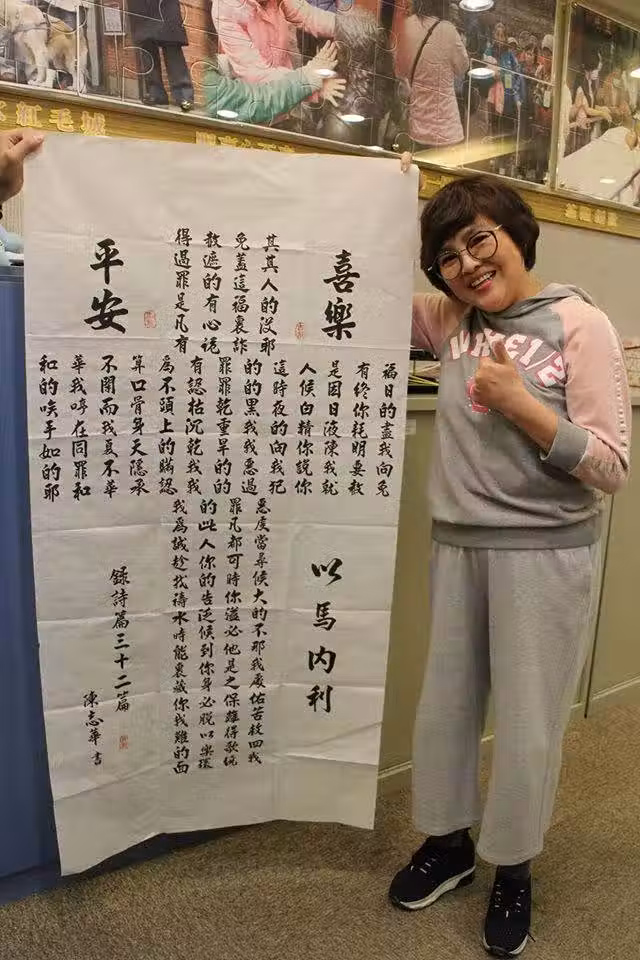 紅毛城
喜樂
平安
得赦免其
過遮蓋其
罪的這人
是有福的
凡心裏沒
有詭詐耶
和華不算為有罪的這人是有福
的我閉口不認罪的時候因終日
唉哼而骨頭枯乾黑夜白日你的
手在我身上沉重我的精液耗盡
如同夏天的乾旱我向你陳明我
的罪不隱瞞我的惡我說我要向
耶和華承認我的過犯你就赦免
我的罪惡
為此凡虔
誠人都當
趁你可尋
找的時候
禱告你大
水泛溢的
時候必不
能到他那
裏你是我
藏身之處
你必保佑
我脫離苦
難以得救
的樂歌四
面環繞我
以馬內利
錄詩篇三十二篇
陳志華 書